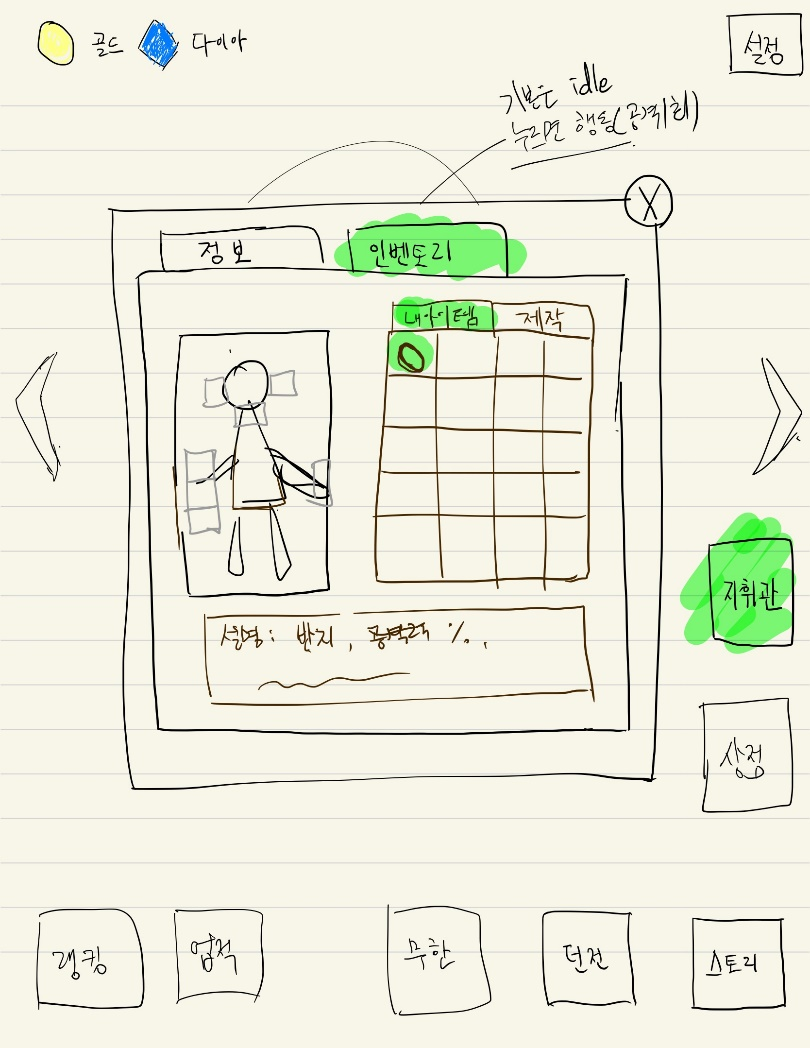 골드
다이아
설정
기본은 idle
누르면 행동(공격1회)
X
정보
인벤토리
내아이템
제작
설명: 반지, 공격력 %,
지휘관
상점
랭킹
업적
무한
던전
스토리